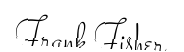 Frank Fisher,